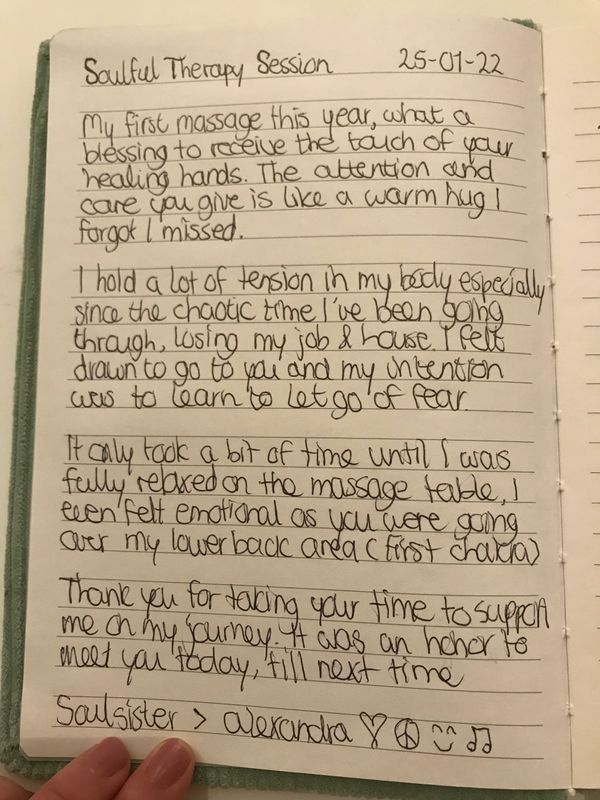 Soulful Therapy Session 25-01-22
My first massage this year, what a
blessing to receive the touch of your
healing hands. The attention and
care you give is like a warm hug I
forgot I missed.
I hold a lot of tension in my body especially
since the chaotic time I've been going
through, losing my job & house. I felt
drawn to go to you and my intention
was to learn to let go of fear.
It only took a bit of time until I was
fully relaxed on the massage table, I
even felt emotional as you were going
over my lower back area (first chakra)
Thank you for taking your time to support
me on my journey. It was an honor to
meet you today, 'till next time
Soulsister > alexandra ♡ ☮ ☺ ♫